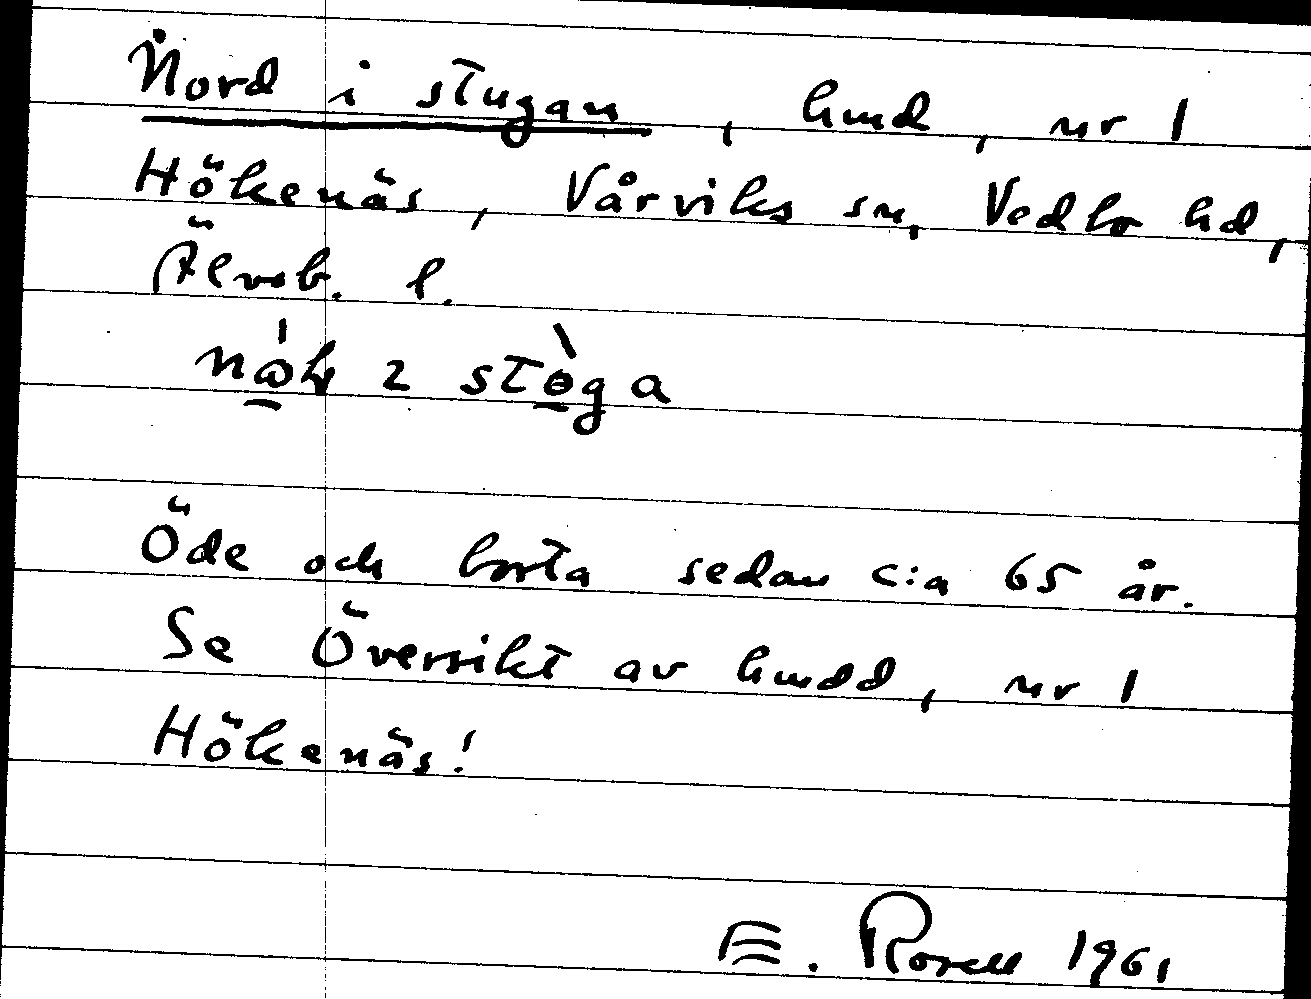 Nord i stugan, hmd, nr 1
Hökenäs, Vårviks sn, Vedbo hd,
Älvsb. l.
2 stöga
Öde och borta sedan c:a 65 år.
Se Översikt av hmdd, nr 1
Hökenäs!
E. Rosell 1961